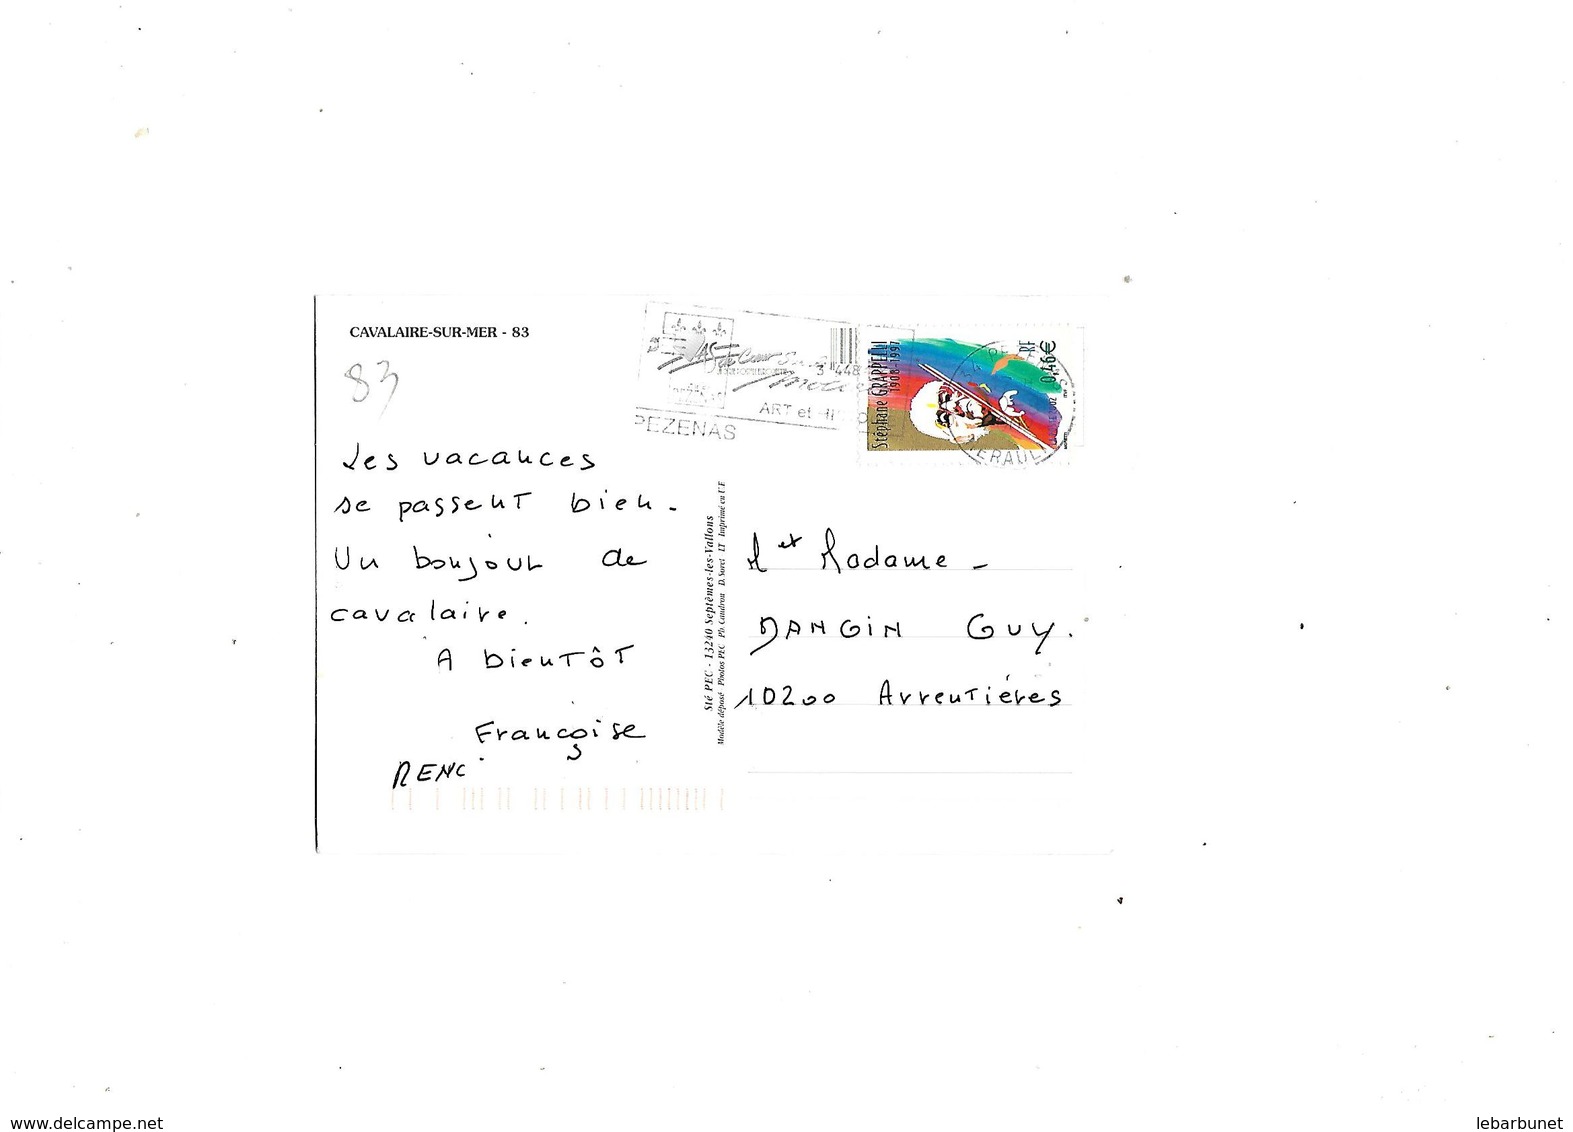 CAVALAIRE-SUR-MER - 83
83
Les vacances
se passent bien.
Un bonjour de
cavalaire.
A bientôt
Françoise
RENÉ
PEZENAS
ART et
3 448
Stéphane GRAPPELLI
1908-1997
RF
0,46€
HERAULT
Sté PEC - 13240 Septèmes-les-Vallons
Modèle déposé Photos PEC Ph. Caudron D. Soret LT Imprimé en U.E
M et Madame -
DANGIN GUY.
10200 Arrentières
www.delcampe.net
lebarbunet